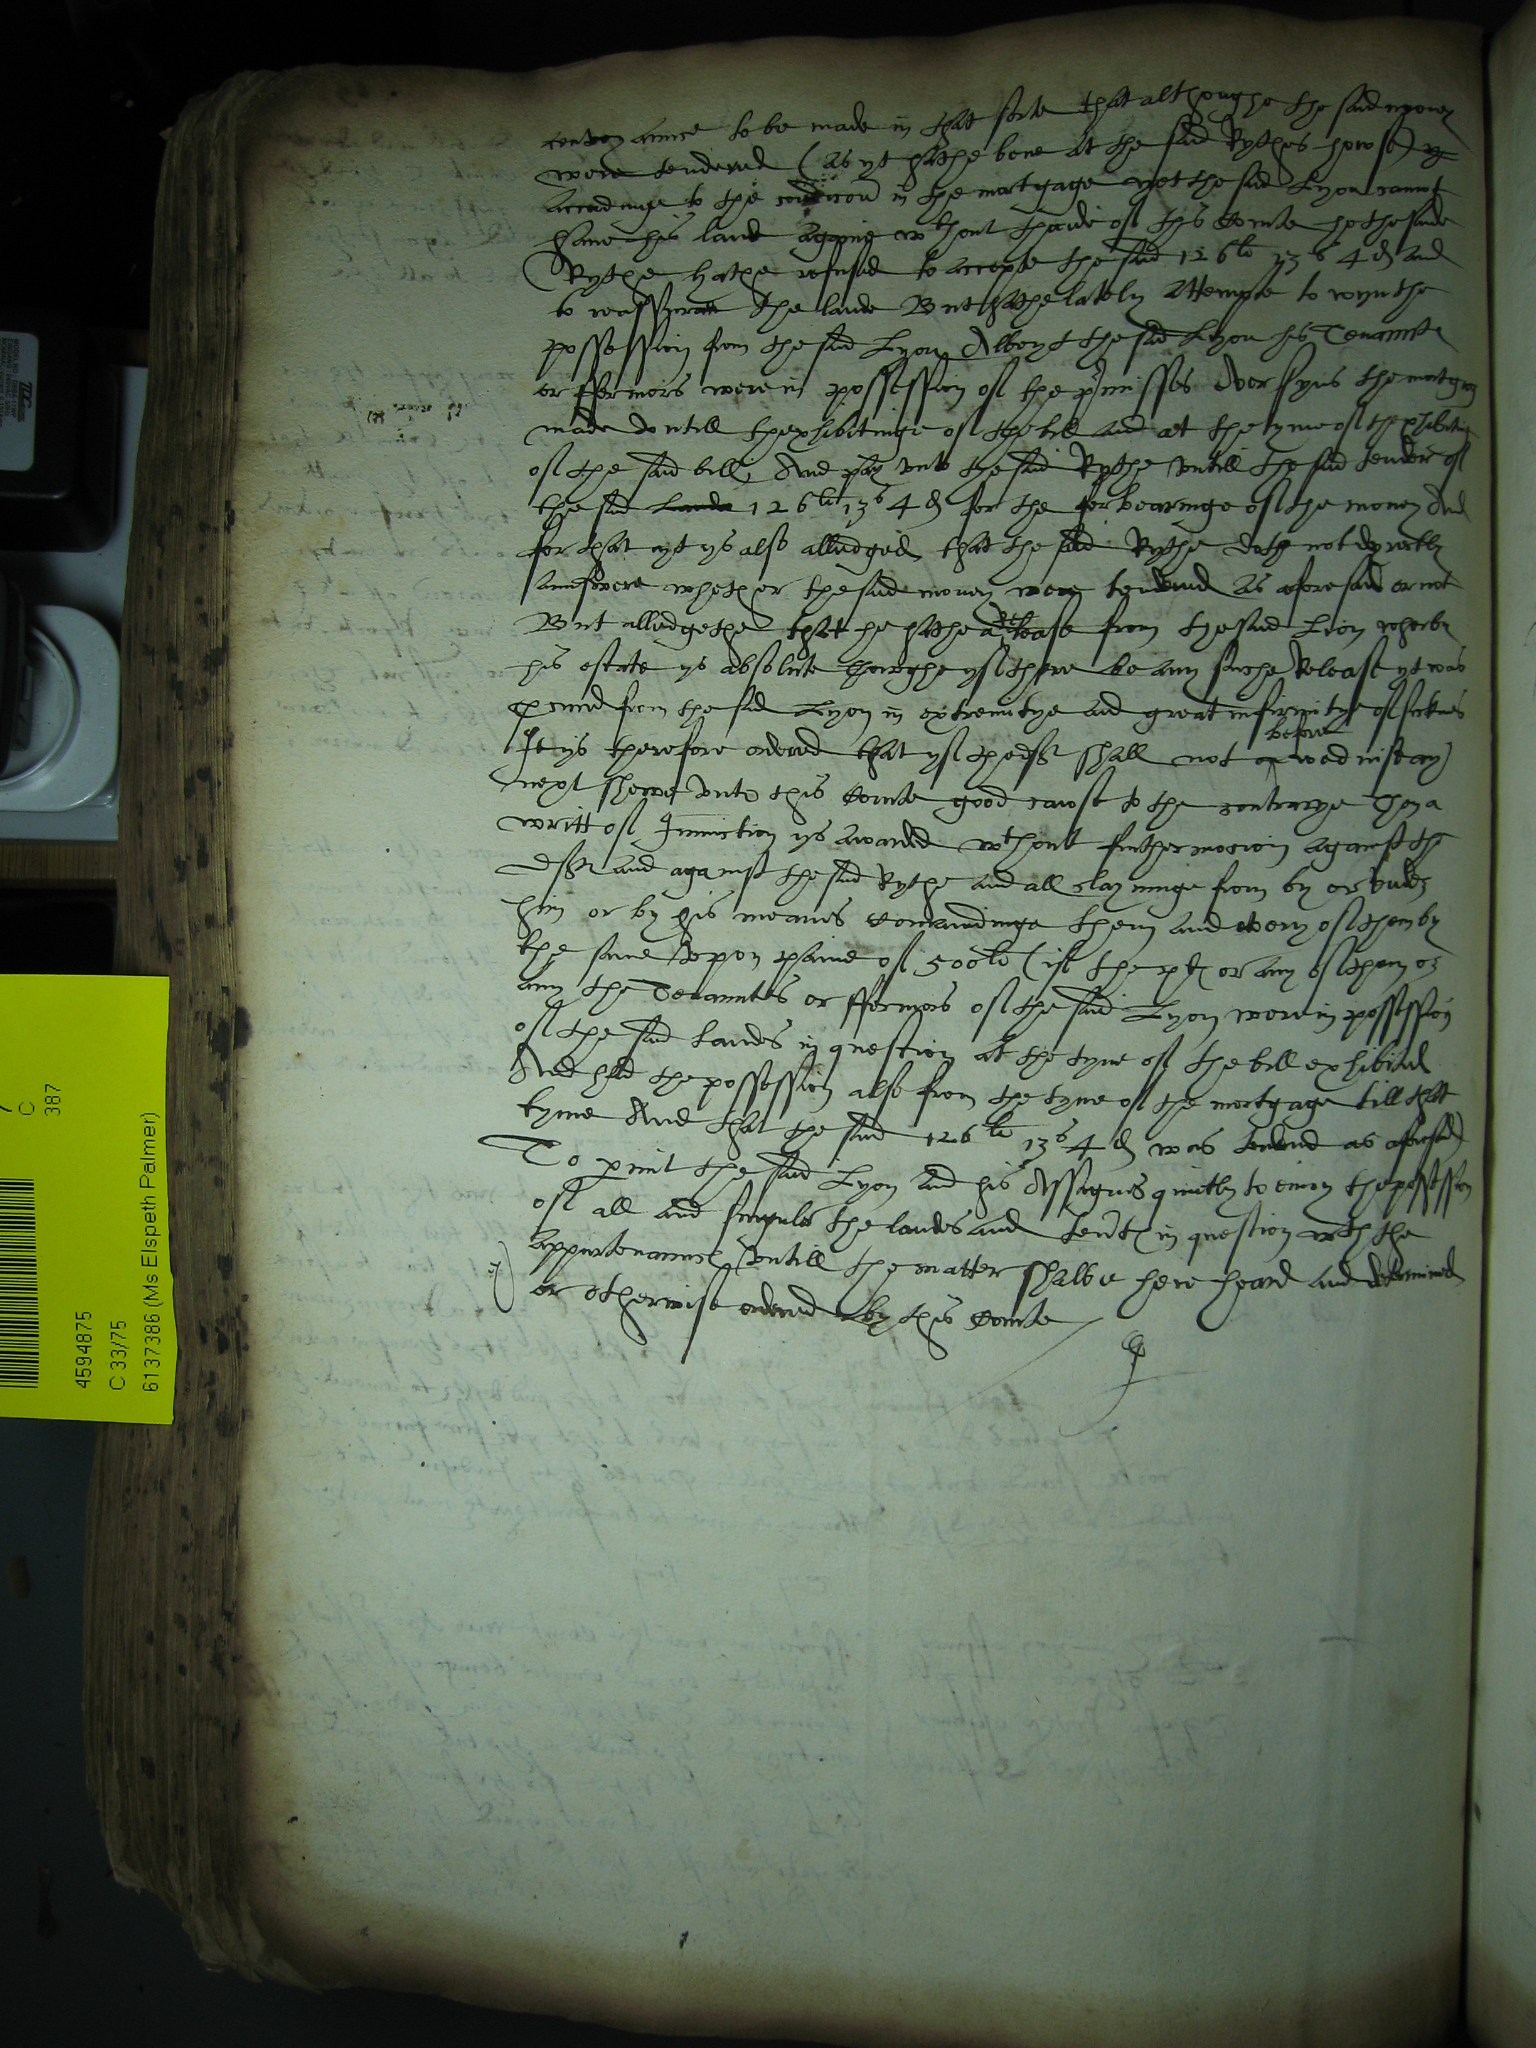 conveyaunce to be made in that sorte that althoughe the said money
were tendered (as yt hathe bene at the said Rythes howse)
accordinge to the condicon in the mortgage yet the said Lyon cannot
have his land agayne wthout thaide of this Courte ffor the saide
Rythe hathe refused to accepte the said 126li 13s 4d and
to reassure the lande But hathe lately attempte to wyn the
possession from the said Lyon Albeyt the said Lyon his Tenaunte
or ffermors were in possession of the pmisses ever syns the mortgage
made untill thexhibitinge of the bill and at the tyme of thexhibitinge
of the said bill, And pay unto the said Rythe untill the said tender of
the said 126li 13s 4d for the forbearinge of the money And
for that yt ys also alledged that the said Rythe doth not dyrectly
aunswere whether the saide money were tendered as aforesaid or not
But alledgethe that he hathe a Release from the said Lion wherby
his estate ys absolute thowghe yf there be any suche Release yt was
gained from the said Lyon in extremitye and great infirmitye of sicknes
It ys therefore ordered that yf the deft shall not before wednisday
next shewe unto this Courte good cawse to the contrarye Then a
writt of Iniunction ys awarded wthout further mocion against the
deft and against the said Rythe and all clayminge from by or under
him or by his meanes Comaundinge them and every of them by
the same Vpon paine of 500li (if the plt or any of them or
any the Tenauntes or ffermors of the said Lyon were in possession
of the said landes in question at the tyme of the bill exhibited
And had the possession also from the tyme of the mortgage till that
tyme And that the said 126li 13s 4d was tendred as aforesaid)
To pmit the said Lyon and his Assignes quietly to enioy the possession
of all and singuler the landes and tentes in question wth the
appurtenaunces untill the matter shalbe here heard and determined
or otherwise ordered by this Courte
4594875
C 33/75
6137386 (Ms Elspeth Palmer)
C
387